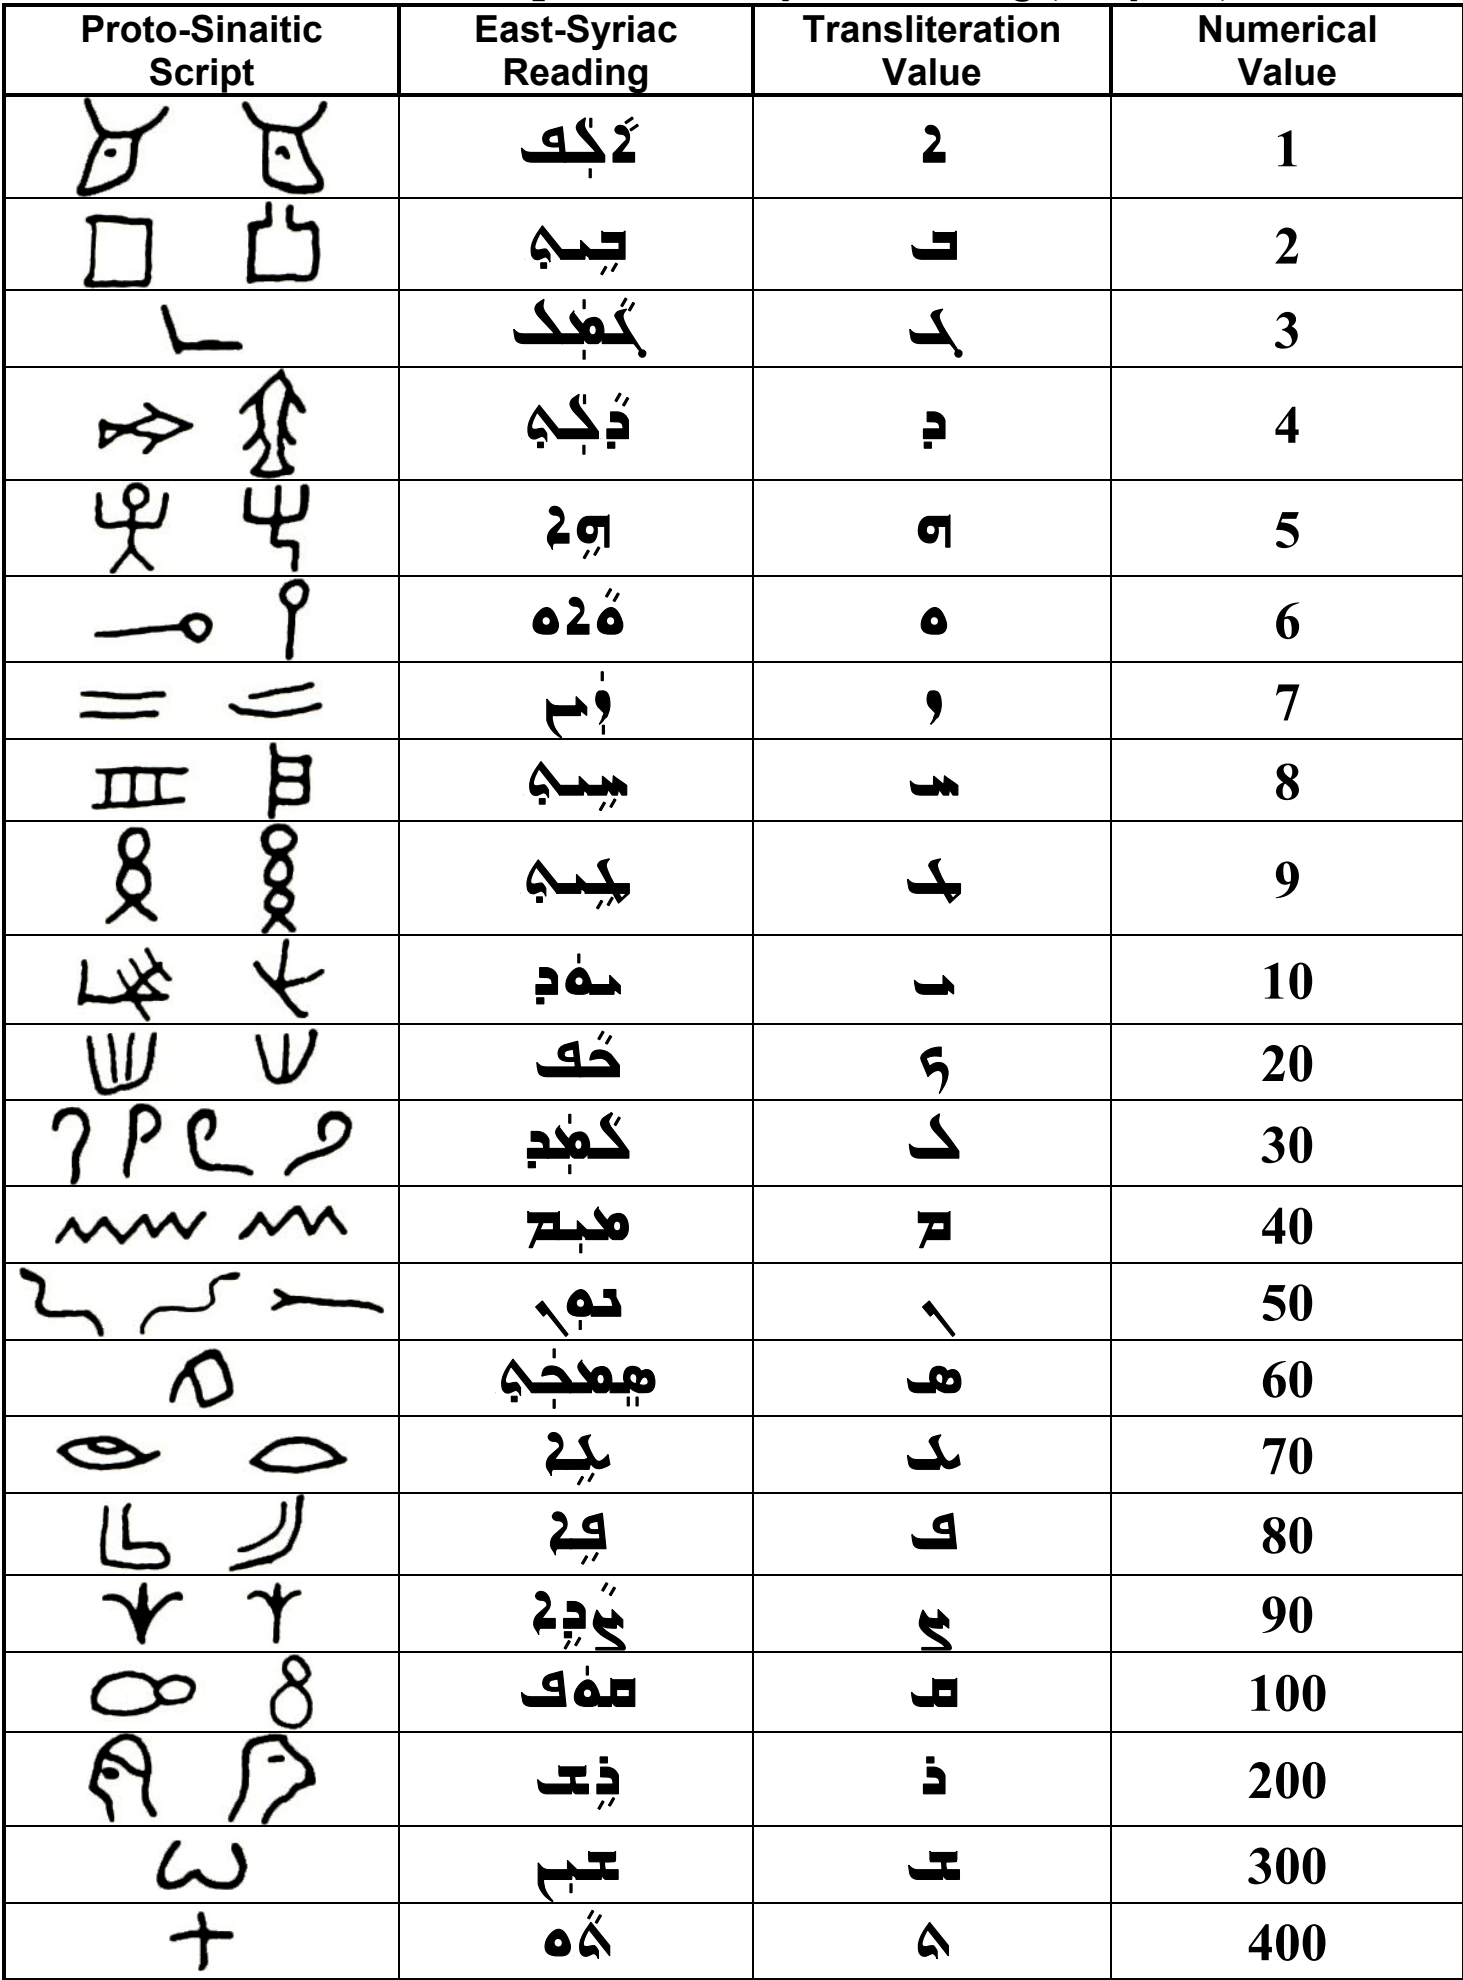 Proto-Sinaitic Script East-Syriac Reading Transliteration Value Numerical Value
ܐܵܠܲܦ ܐ 1
ܒܹܝܬ݂ ܒ 2
ܓܵܡܲܠ ܓ 3
ܕܵܠܲܬ݂ ܕ 4
ܗܹܐ ܗ 5
ܘܵܐܘ ܘ 6
ܙܲܝܢ ܙ 7
ܚܹܝܬ݂ ܚ 8
ܛܹܝܬ݂ ܛ 9
ܝܘܿܕ ܝ 10
ܟܵܦ ܟ 20
ܠܵܡܲܕ ܠ 30
ܡܝܼܡ ܡ 40
ܢܘܼܢ ܢ 50
ܣܸܡܟܲܬ݂ ܣ 60
ܥܹܐ ܥ 70
ܦܹܐ ܦ 80
ܨܵܕܹܐ ܨ 90
ܩܘܿܦ ܩ 100
ܪܹܫ ܪ 200
ܫܝܼܢ ܫ 300
ܬܵܘ ܬ 400